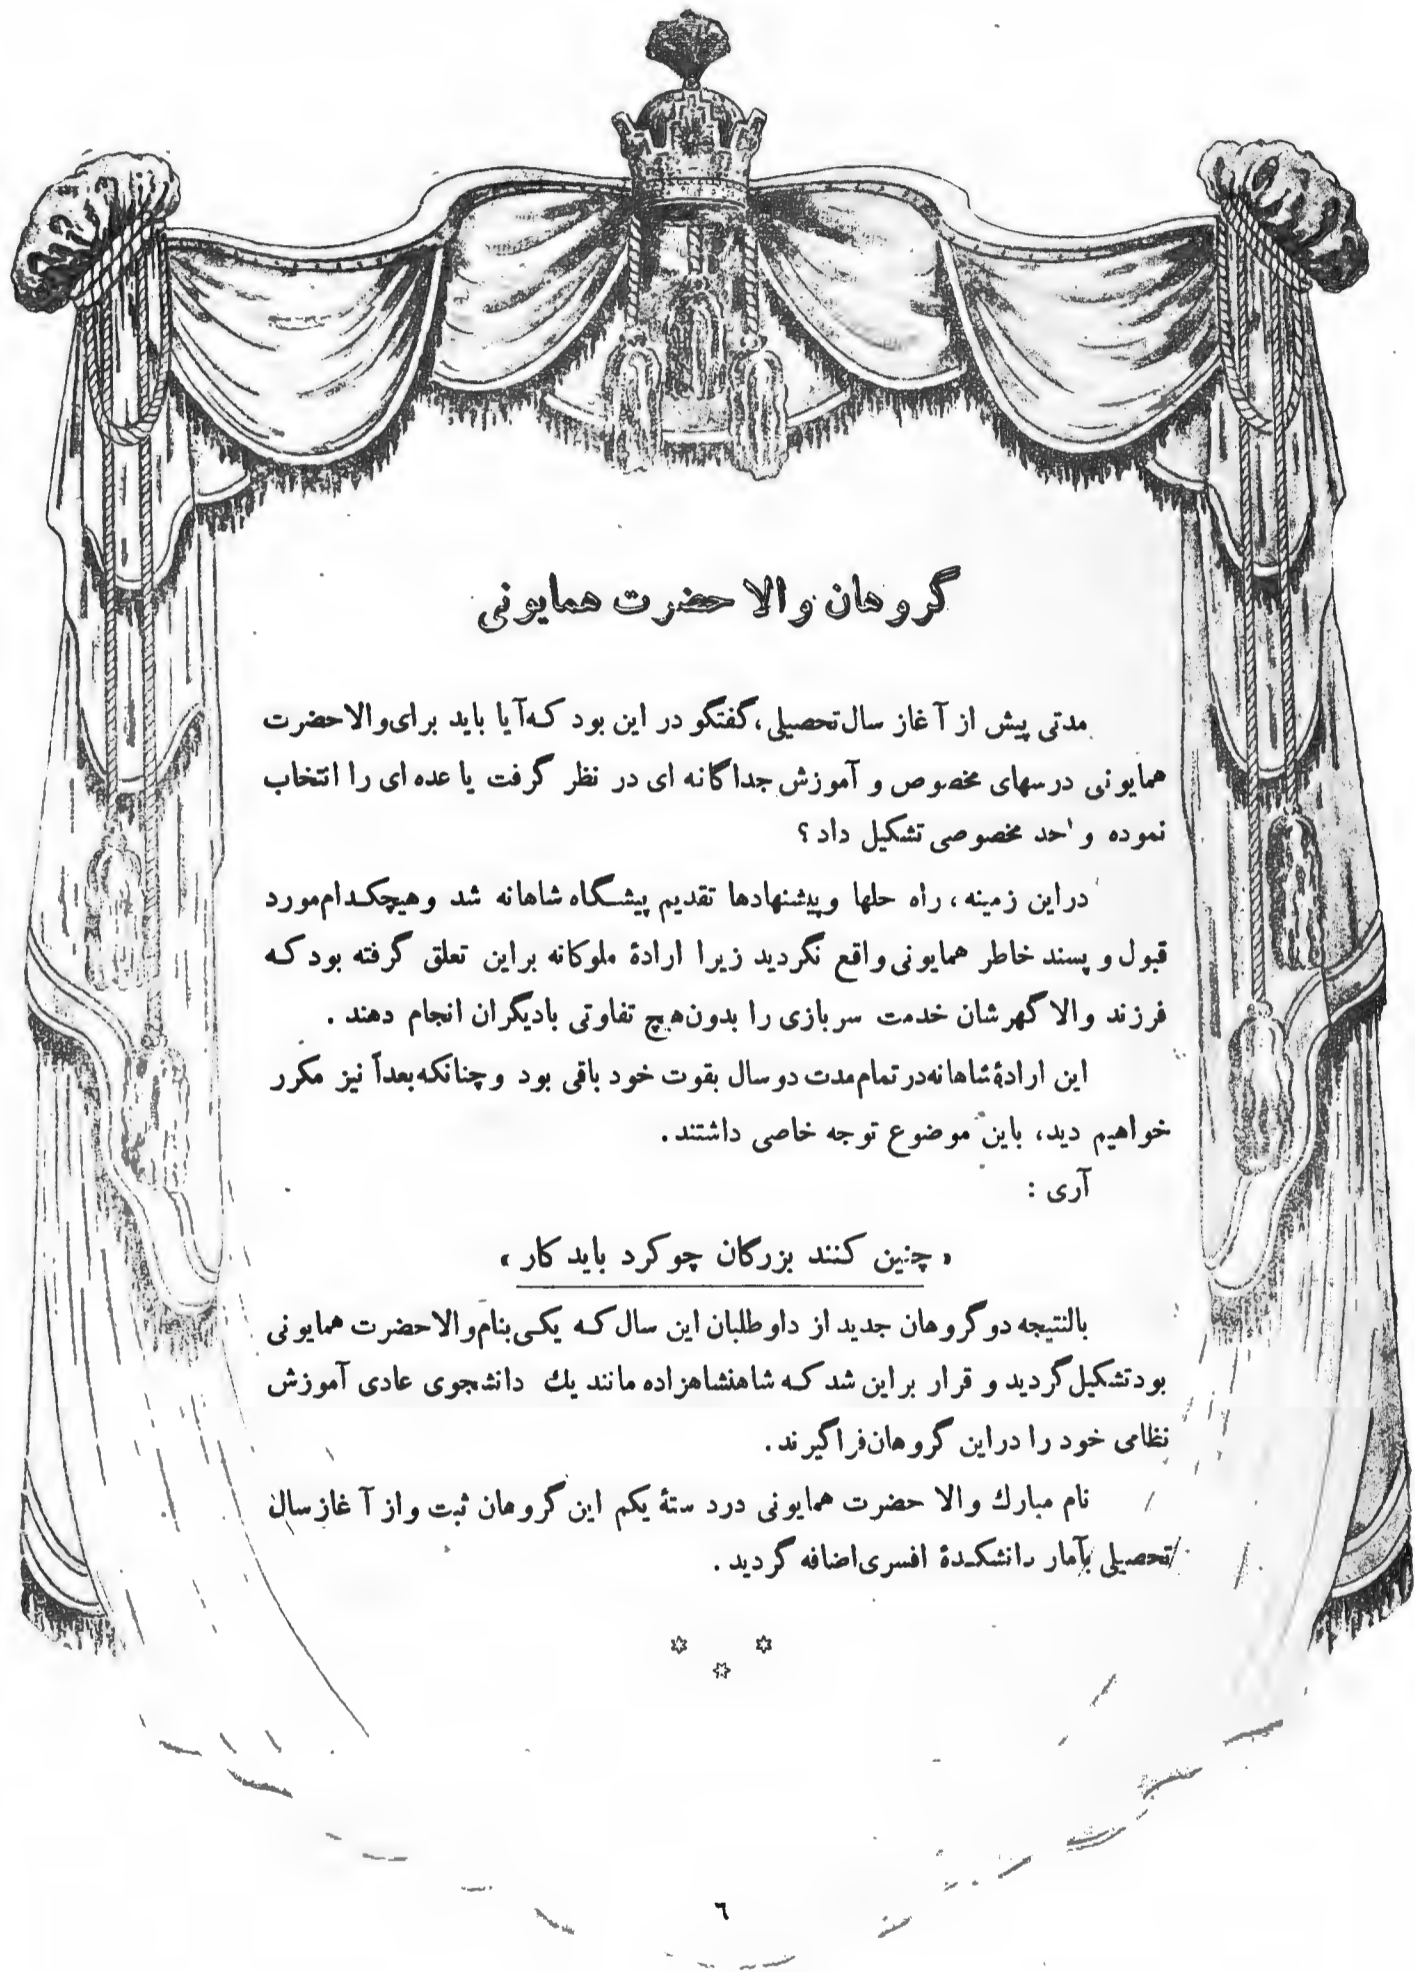 گروهان والا حضرت همایونی
مدتی پیش از آغاز سال تحصیلی، گفتگو در این بود که آیا باید برای والاحضرت
همایونی درسهای مخصوص و آموزش جداگانه ای در نظر گرفت یا عده ای را انتخاب
نموده واحد مخصوصی تشکیل داد ؟
در این زمینه ، راه حلها و پیشنهادها تقدیم پیشگاه شاهانه شد و هیچکدام مورد
قبول و پسند خاطر همایونی واقع نگردید زیرا ارادهٔ ملوکانه براین تعلق گرفته بود که
فرزند والا گهرشان خدمت سربازی را بدون هیچ تفاوتی بادیگران انجام دهند .
این ارادهٔ شاهانه در تمام مدت دو سال بقوت خود باقی بود و چنانکه بعداً نیز مکرر
خواهیم دید، باین موضوع توجه خاصی داشتند .
آری :
« چنین کنند بزرگان چو کرد باید کار »
بالنتیجه دو گروهان جدید از داوطلبان این سال که یکی بنام والاحضرت همایونی
بود تشکیل گردید و قرار براین شد که شاهنشاهزاده مانند یك دانشجوی عادی آموزش
نظامی خود را در این گروهان فراگیرند .
نام مبارك والا حضرت همایونی در دستهٔ یکم این گروهان ثبت و از آغاز سال
تحصیلی بآمار دانشکدهٔ افسری اضافه گردید .
٦